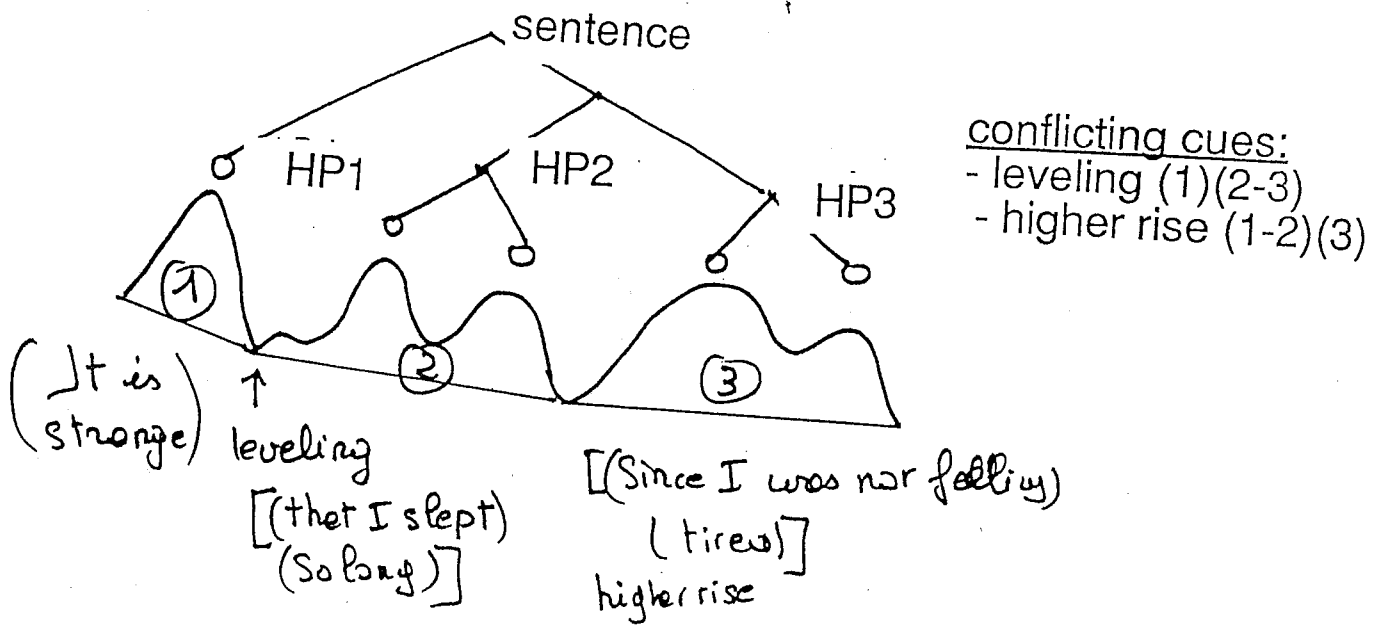 sentence
HP1
HP2
HP3
conflicting cues:
- leveling (1)(2-3)
- higher rise (1-2)(3)
1
2
3
(It is
strange)
↑
leveling
[(that I slept)
(So long)]
[(Since I was not feeling)
(tired)]
higher rise